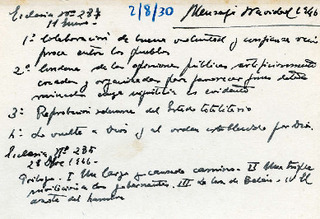 Ecclesia Nº 287
11 Enero -
2/8/30
Mensaje Navidad 1946
1º Colaboración de buena voluntad y confianza recí
proca entre los pueblos
2º Condena de las opiniones públicas artificiosamente
creadas y organizadas para favorecer fines
injusticia es evidente
3º Reprobación solemne del Estado totalitario
4º La vuelta a Dios y al orden establecido por Dios.
Ecclesia Nº 285
28 Dbre 1946 -
Prólogo - I Un largo y camino. II Una triple
a los gobernantes. III de luz de Belén. IV El
del hombre